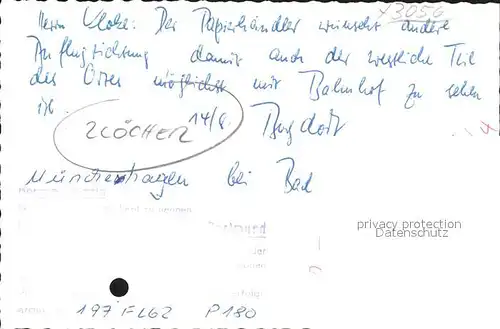 X3056
Herrn Klohe: Der Papierhändler wünscht andere
Anflugrichtung damit auch der westliche Teil
des Ortes möglichst mit Bahnhof zu sehen
ist.
2 LÖCHER 14/8. Burgdorf
Münchehagen bei Bad
privacy protection
Datenschutz
197 FL62 P180